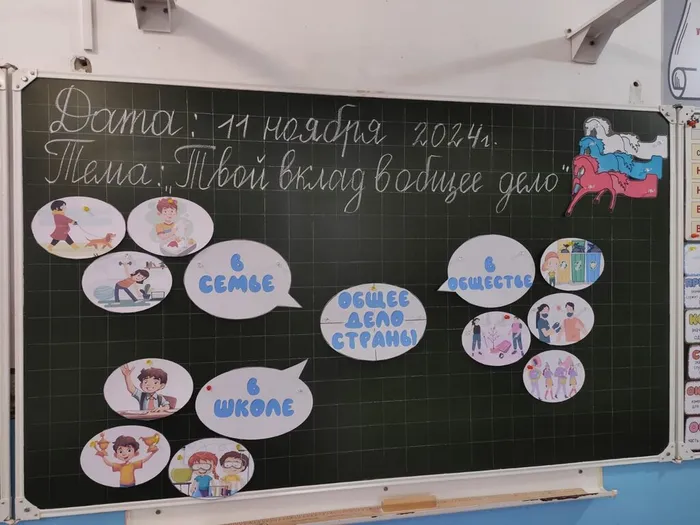 Дата: 11 ноября 2024г.
Тема: „Твой вклад в общее дело"
В
СЕМЬЕ
ОБЩЕЕ
ДЕЛО
СТРАНЫ
В
ОБЩЕСТВЕ
В
ШКОЛЕ